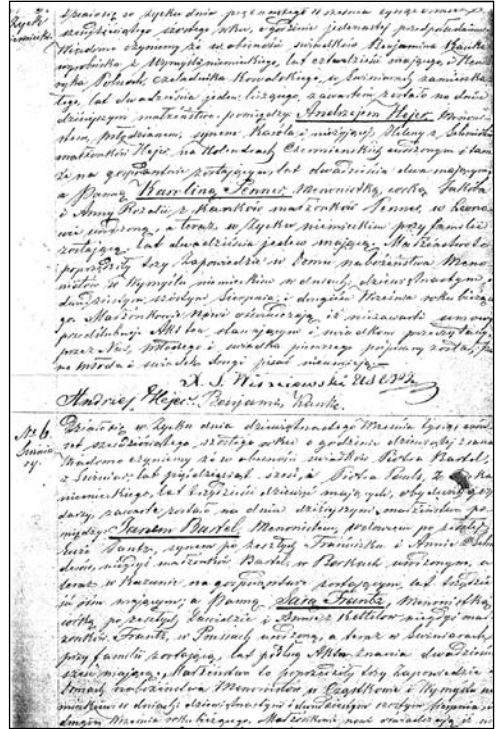 Działo się w Życku dnia
sześćdziesiątego szóstego roku, o godzinie jedenastej przedpołudniem
Wiadomo czynimy że w obecności świadków Benjamina Kanke
wyrobnika z Wymyśla niemieckiego, lat czterdzieści mającego, i Hen
ryka Poludi, czeladnika Kowalskiego, w zamieszka
łego, lat dwadzieścia jeden liczącego, zawartem zostało na dniu
dzisiejszym małżeństwo, pomiędzy Andrzejem Hejer, Menoni
stem, Młodzianem, synem Karola i nieżyjącej Heleny z Schmidtów
małżonków Hejer, na Holendrach Czermienskich urodzonym i tam
że na gospodarstwie zostającym, lat dwadzieścia dwa mającym;
a Panną Karoliną Penner, Menonistką, córką Jakóba
i Anny Rozalii z Kanków małżonków Penner, w Leono
wie urodzoną, a teraz w Życku niemieckim przy familii
zostającą, lat dwadzieścia jeden mającą. Małżeństwo to
poprzedziły trzy zapowiedzie w Domu nabożeństwa Meno
nistów w Wymyślu niemieckim w dniach, dziewiętnastym,
dwudziestym szóstym Sierpnia, i drugim Września roku bieżą
cego. Małżonkowie Nowi oświadczają iż niezawarli umowy
przedślubnej. Akt ten stawającym i świadkom przeczytany,
przez Nas, Młodego i świadka pierwszego podpisany został,
na młoda i świadek drugi pisać nieumieją.
Andrzej Hejer. Benjamin Kanke.
No 6.
Działo się w Życku dnia dziewiętnastego Września tysiąc ośm
set sześćdziesiątego szóstego roku o godzinie dziewiątej z rana
Wiadomo czynimy że w obecności świadków Piotra Bartel,
z lat pięćdziesiąt sześć, i Piotra Pauls, z
niemieckiego, lat trzydzieści dziewięć mających, obydwóch gospo
darzy, zawarte zostało na dniu dzisiejszym małżeństwo po
między Janem Bartel, Menonistem, wdowcem po zeszłej
Zuzie Jantz, synem po zeszłych Franciszku i Annie z
małżonków Bartel, w Borkach urodzonym, a
teraz w Kazuniu na gospodarstwie zostającym, lat trzydzie
ści ośm mającym; a Panną Sarą Frantz, Menonistką,
córką po zeszłych Dawidzie i Annie z niegdyś mał
żonków Frantz, w Prusach urodzoną, a teraz w
przy familii zostającą, lat podług Aktu znania dwadzieścia
sześć mającą. Małżeństwo to poprzedziły trzy zapowiedzie w
Domach nabożeństwa Menonistów w Czątkowie i Wymyślu nie
mieckiem w dniach dziewiętnastym i dwudziestym szóstym Sierpnia, i
drugim Września roku bieżącego. Małżonkowie nowi oświadczają iż